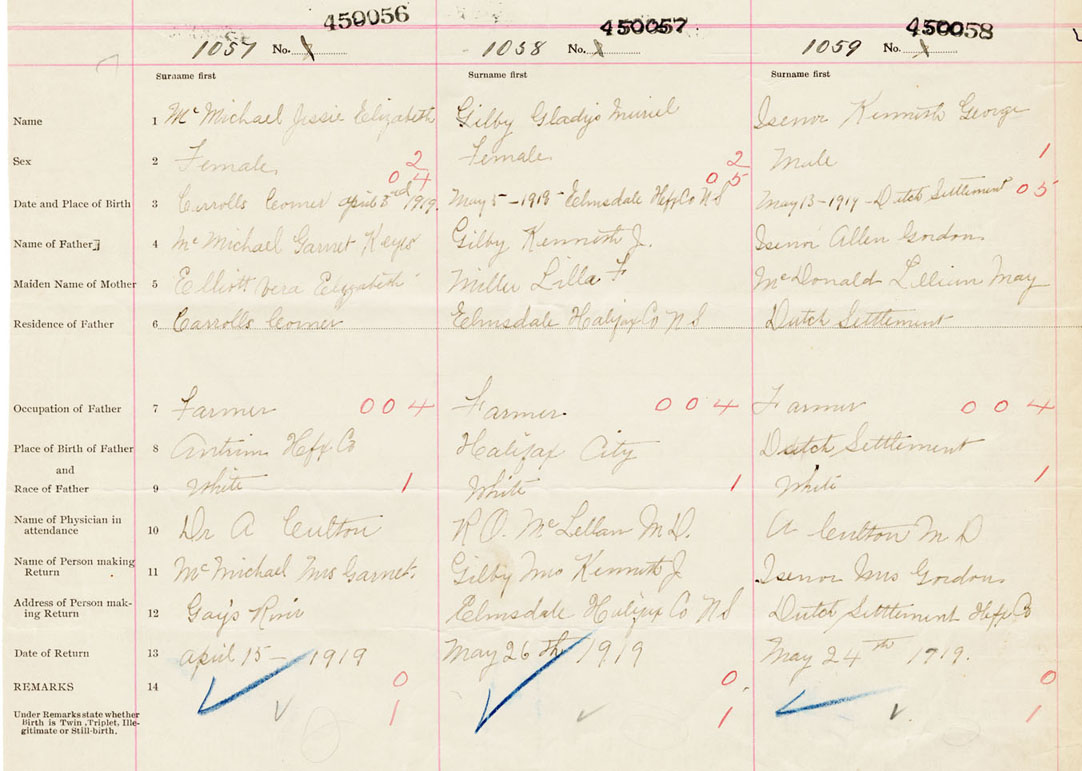 459056 450057 450058
1057 No. 1058 No. 1059 No.
Surname first Surname first Surname first
Name 1 Mc Michael Jessie Elizabeth Gilby Gladys Muriel Isenor Kenneth George
Sex 2 Female 2 Female 2 Male 1
04 05
Date and Place of Birth 3 Carrolls Corner April 3rd 1919 May 5 - 1919 - Elmsdale Hfx Co N S May 13 - 1919 - Dutch Settlement 05
Name of Father 4 Mc Michael Garnet Keys Gilby Kenneth J. Isenor Allen Gordon
Maiden Name of Mother 5 Elliott Vera Elizabeth Miller Lilla F Mc Donald Lillian May
Residence of Father 6 Carrolls Corner Elmsdale Halifax Co N S Dutch Settlement
Occupation of Father 7 Farmer 004 Farmer. 004 Farmer 004
Place of Birth of Father 8 Antrim Hfx Co Halifax City Dutch Settlement
and
Race of Father 9 White 1 White 1 White 1
Name of Physician in
attendance 10 Dr A Cullton R O. Mc Lellan M D. A Cullton M D
Name of Person making
Return 11 Mc Michael Mrs Garnet. Gilby Mrs Kenneth J Isenor Mrs Gordon
Address of Person mak-
ing Return 12 Gay's River Elmsdale Halifax Co N S Dutch Settlement Hfx Co
Date of Return 13 April 15 - 1919 May 26th 1919 May 24th 1919.
REMARKS 14 0 0 0
Under Remarks state whether
Birth is Twin, Triplet, Ille-
gitimate or Still-birth. 1 1 1